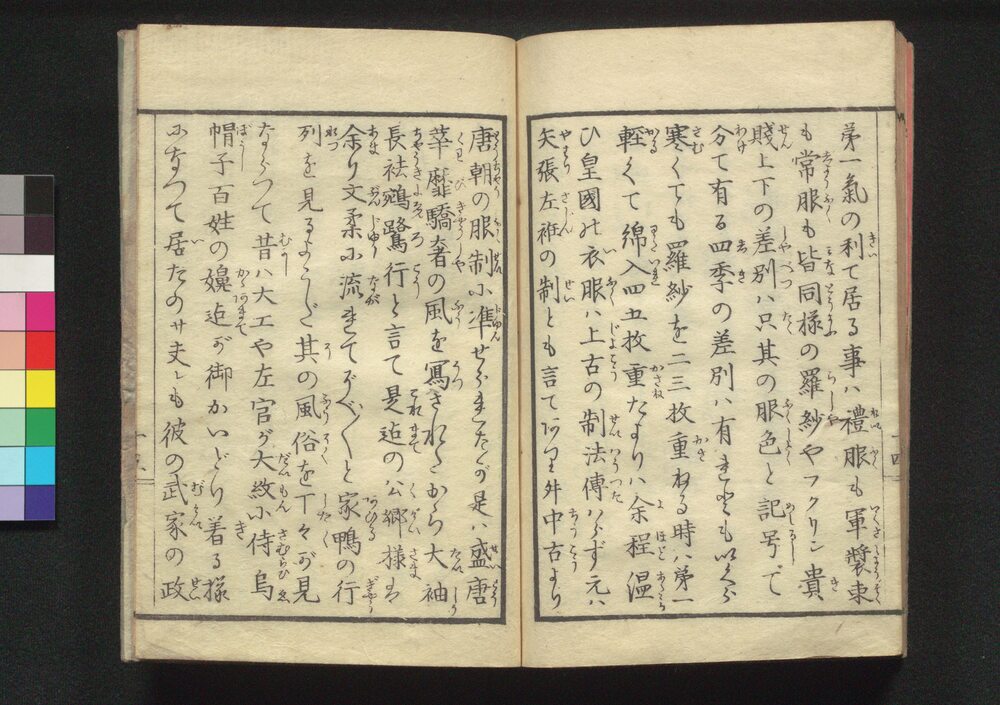 第一氣の利て居る事ハ禮服も軍裝束
も常服も皆同様の羅紗やフクリン貴
賤上下の差別ハ只其の服色と記号で
分て有る四季の差別ハ有れども いくら
寒くても羅紗を二三枚重ねる時ハ第一
軽くて綿入四五枚重たよりハ余程温
ひ皇國の衣服ハ上古の制法傳ハらず元ハ
矢張左衽の制とも言て 外中古より
唐朝の服制に準せられたが是ハ盛唐
華靡驕奢の風を寫されたから大袖
長袪鵷鷺行と言て是迠の公郷様は
余り文柔に流れてがべ〱と家鴨の行
列を見るようだ其の風俗を下々が見
ならつて昔ハ大工や左官が大紋小侍烏
帽子百姓の嬶迠が御かいどり着る様
になつて居たのサ夫とも彼の武家の政